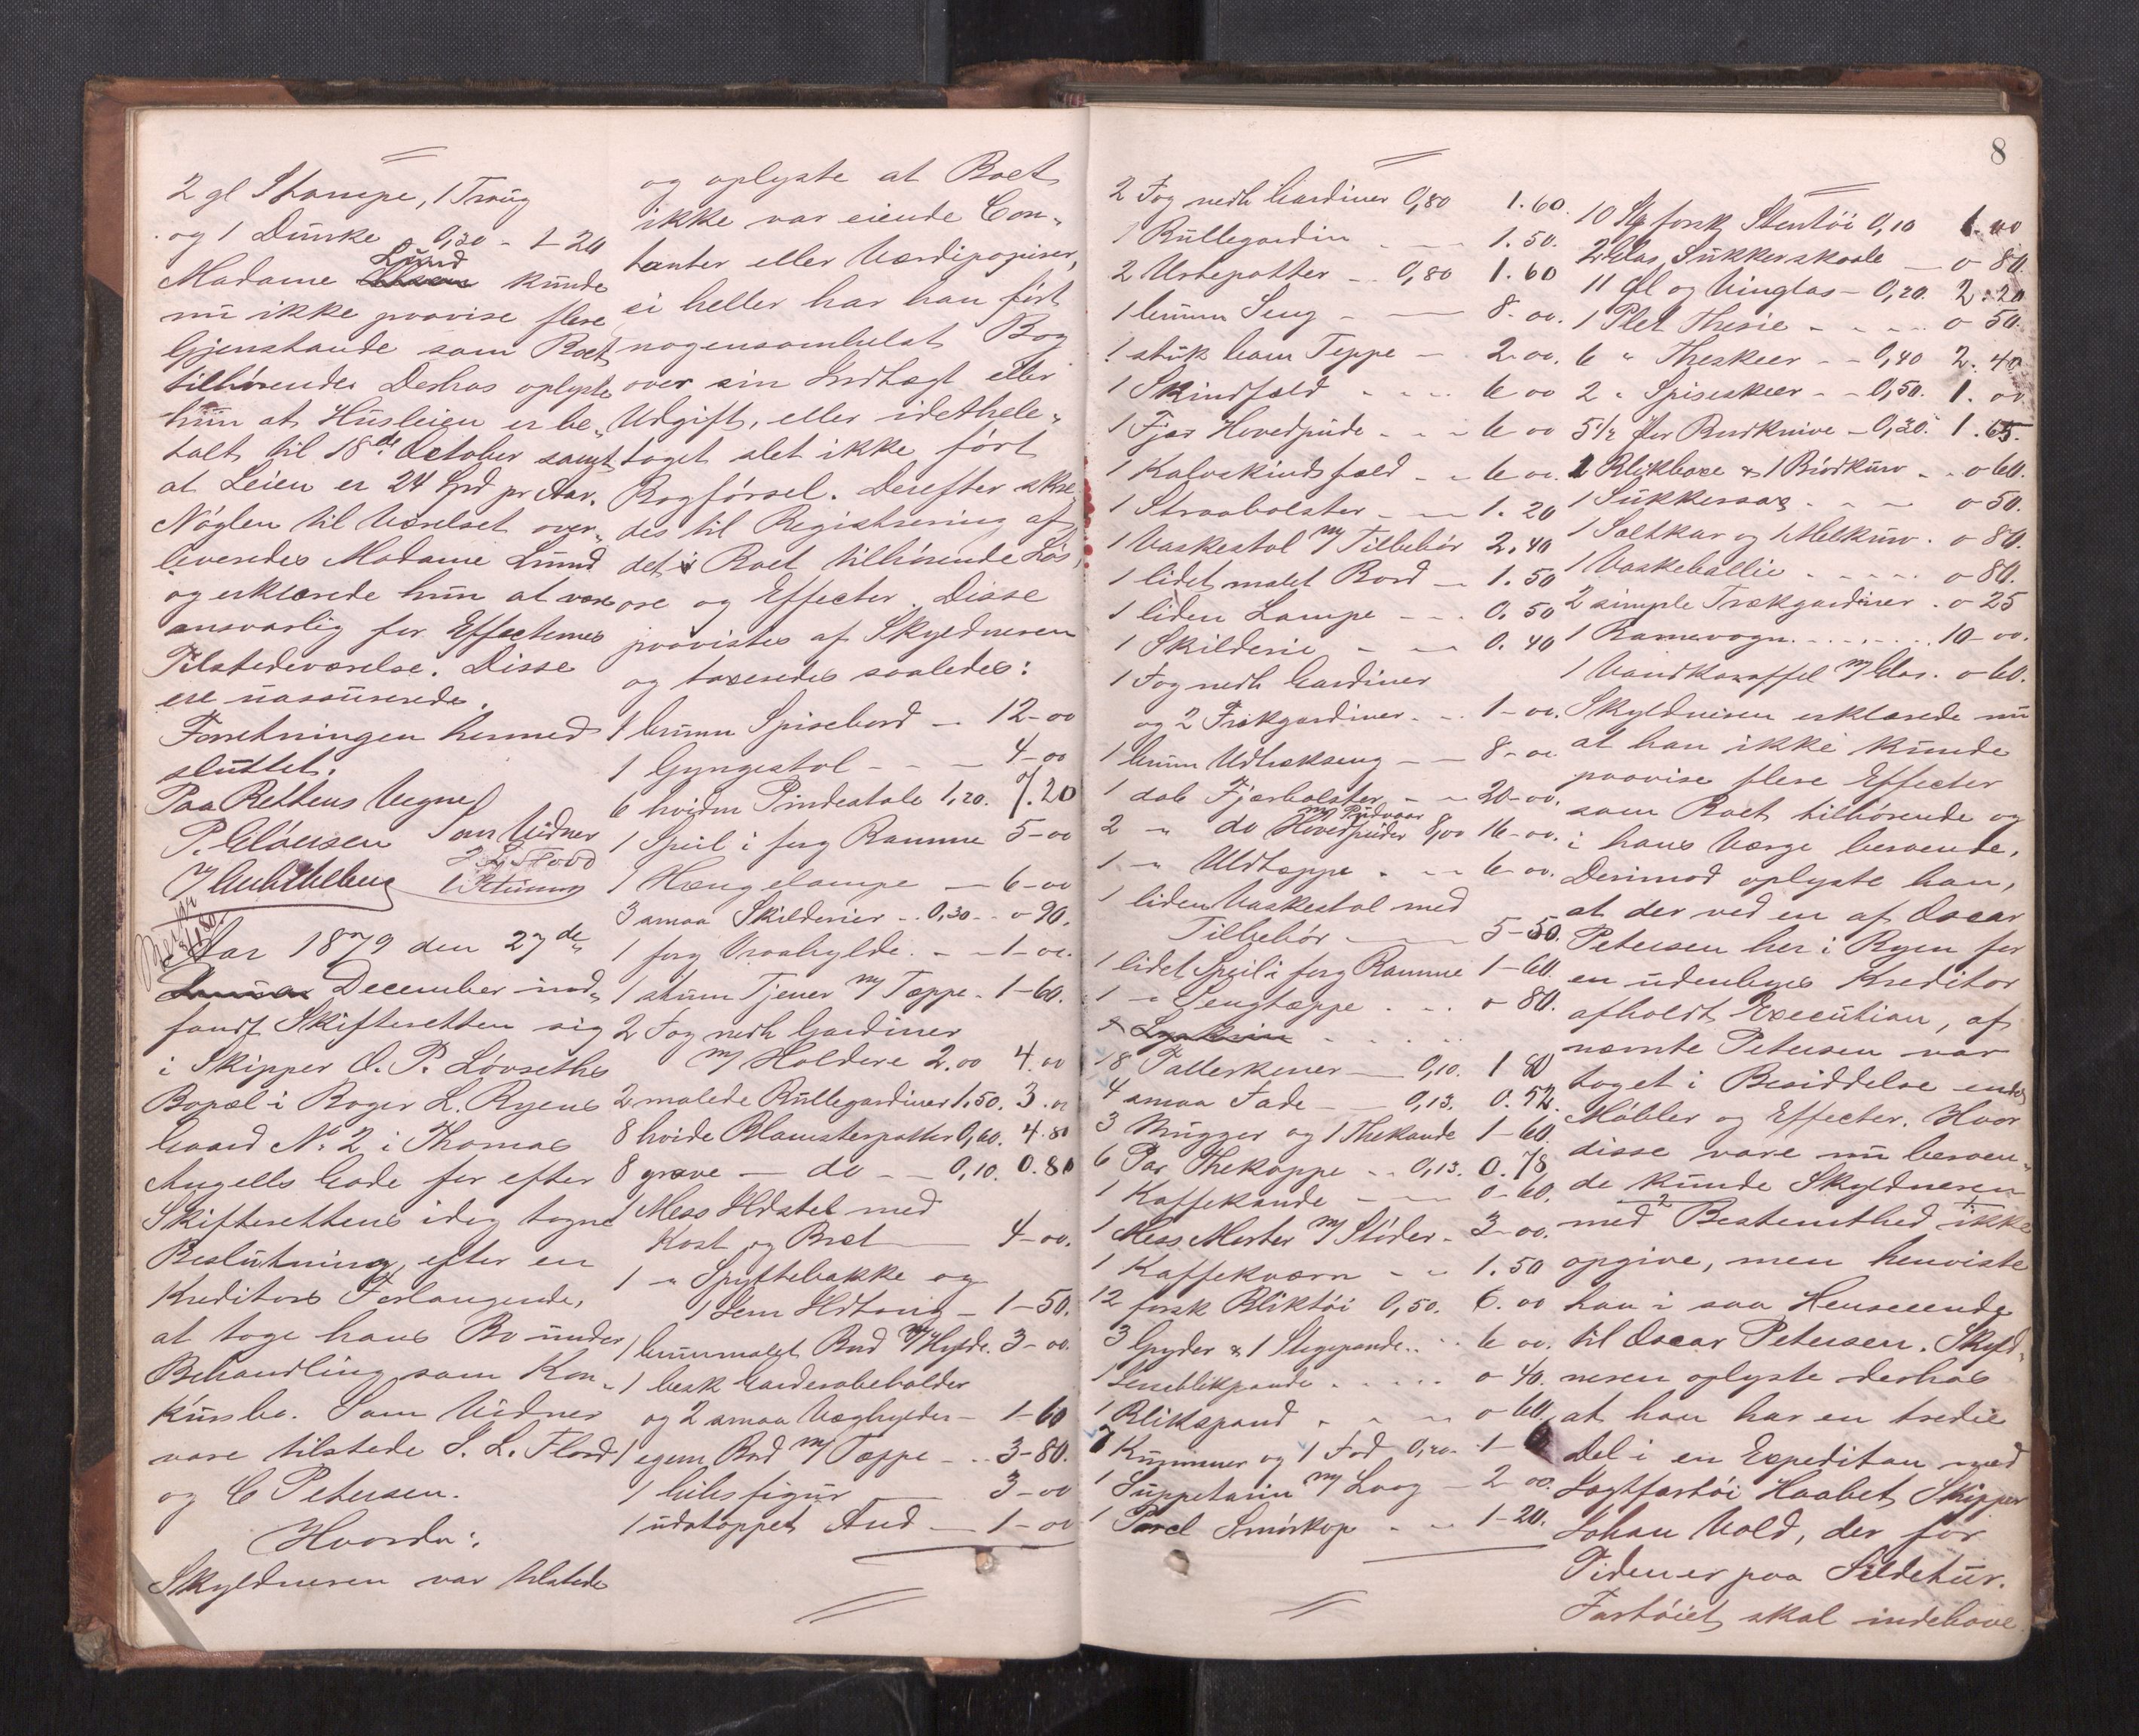 2 gl Stampe, 1 Traug
og 1 Dunke 0,30 - 1-20
Madame Lund kunde
nu ikke paavise flere
Gjenstande som Boet
tilhørende. Derhos oplyste
hun at Husleien er be-
talt til 18de October samt
at Leien er 24 Spd pr Aar.
Nøglen til Værelset over-
leveredes Madame Lund
og erklærede hun at være
ansvarlig for Effecternes
Tilstedeværelse. Disse
ere uassurerede.
Forretningen hermed
sluttet.
Paa Rettens Vegne
P. Cløusen som Vidner
J. L. Flood
C Petersen
Aar 1879 den 27de
December ind-
fandt Skifteretten sig
i Skipper O. P. Løvseths
Bopæl i Roger L. Ryens
Gaard No 2 i Thomas
Angells Gade for efter
Skifterettens idag tagne
Beslutning, efter en
Kreditors Forlangende,
at tage hans Bo under
Behandling som Kon-
kursbo. Som Vidner
vare tilstede J. L. Flood
og C Petersen.
Hvorda:
Skyldneren var tilstede
og oplyste at Boet
ikke var eiende Con-
tanter eller Værdipapirer,
ei heller har han ført
nogensomhelst Bog
over sin Indtægt eller
Udgift, eller idethele-
taget slet ikke ført
Bogførsel. Derefter skre-
des til Registrering af
det Boet tilhørende Løs-
øre og Effecter. Disse
paavistes af Skyldneren
og taxeredes saaledes:
1 brunm Spisebord - 12-00
1 Gyngestol - - - 4-00
6 hvidm Pindestole 1,20. 7.20
1 Speil i forg Ramme 5-00
1 Hængelampe - 6-00
3 smaa Skilderier - 0,30 - 0-90.
1 forg Vraahylde - - 1-00.
1 stum Tjener m/ Tæppe - 1-60.
2 Fag nedh Gardiner
m/ Holdere 2.00 4.00
2 malede Rullegardiner 1,50. 3.00
8 hvide Blomsterpotter 0,60. 4.80
8 græve - do - - 0,10. 0.80
1 Mess Ildstel med
Kost og Bret - 4-00.
1 " Spyttebakke og
1 Jern Ildtang - 1-50.
1 brunmalet Bord m/ Hylde. 3-00.
1 besk Garderobeholder
og 2 smaa Væghylder - 1-60
1 egem Bord m/ Tæppe - - 3-80.
1 Gibsfigur - 3-00
1 udstoppet And - 1-00
8
2 Fag nedh Gardiner 0,80 1.60
1 Rullegardin - - 1.50.
2 Urtepotter - - 0,80 1.60
1 brunm Seng - - 8-00.
1 strik Teppe - 2-00.
1 Skindfeld - - - 6 00
1 Fjær Hovedpude - - - 6 00
1 Kalvskindsfeld - - 6 00.
1 Straabolster - - 1.20
1 Vaskestol m/ Tilbehør 2.40
1 lidet malet Bord - 1.50
1 liden Lampe - - 0.50
1 Skilderie - - 0.40
1 Fag nedh Gardiner
og 2 Trækgardiner - - 1-00.
1 brunm Udtrækseng - - 8-00
1 dob Fjærbolster - - 20-00.
2 " do Hovedpuder m/ Pudvaar 8,00 16-00.
1 " Uldtæppe - - 6-00.
1 liden Vaskestol med
Tilbehør - 5-50.
1 lidet Speil i forg Ramme 1-60.
1 " Sengtæppe - - - 0-80.
18 Tallerkener - 0,10. 1 80
4 smaa Fade - 0,13. 0.52.
3 Mugger og 1 Thekande 1-60.
6 Par Thekoppe - - 0,13. 0.78
1 Kaffekande - - 0-60.
1 Mess Morter m/ Støder - 3-00.
1 Kaffekværn - - 1.50
12 forsk Bliktøi 0,50. 6.00
3 Gryder & 1 Stegepande - - 6 00.
1 Jernblikpande - - - 0 40.
1 Blikspand - - - 0 60.
7 Kummer og 1 Fad 0,20 - 1-
1 Suppeterin m/ Laag - 2 00.
1 Porcl Smørkop - - 1-20.
10 Stg forsk Stentøi 0,10 1.00
2 Glas Sukkerskaale - 0 80.
11 Øl og Vinglas - 0,20. 2.20
1 Plet Thesie - - - - 0 50.
6 " Theskeer - - 0,40 2.40
2 " Spiseskeer - - 0,50. 1.00
5 1/2 Par Bordknive - 0,30. 1.65.
2 Blikbøxe & 1 Brødkurv - - 0 60.
1 Sukkersax - - - 0 50.
1 Saltkar og 1 Melkurv. 0-80.
1 Vaskeballie - - - - 0-80.
2 simple Trækgardiner - 0-25
1 Barnevogn - - - - 10-00.
1 Vandkaraffel m/ Glas. 0-60.
Skyldneren erklærede nu
at han ikke kunde
paavise flere Effecter
som Boet tilhørende og
i hans Værge beroende.
Derimod oplyste han,
at der ved en af Oscar
Petersen her i Byen for
en udenbyes Kreditor
afholdt Execution, af
nævnte Petersen var
taget i Besiddelse endel
Møbler og Effecter. Hvor
disse vare nu beroen-
de kunde Skyldneren
med Bestemthed ikke
opgive, men henviste
han i saa Henseende
til Oscar Petersen. Skyld-
neren oplyste derhos
at han har en tredie
Del i en Expedition med
Jagtfartøi Haabet Skipper
Johan Vold, der for
Tiden er paa Sildetur.
Fartøiet skal indehave